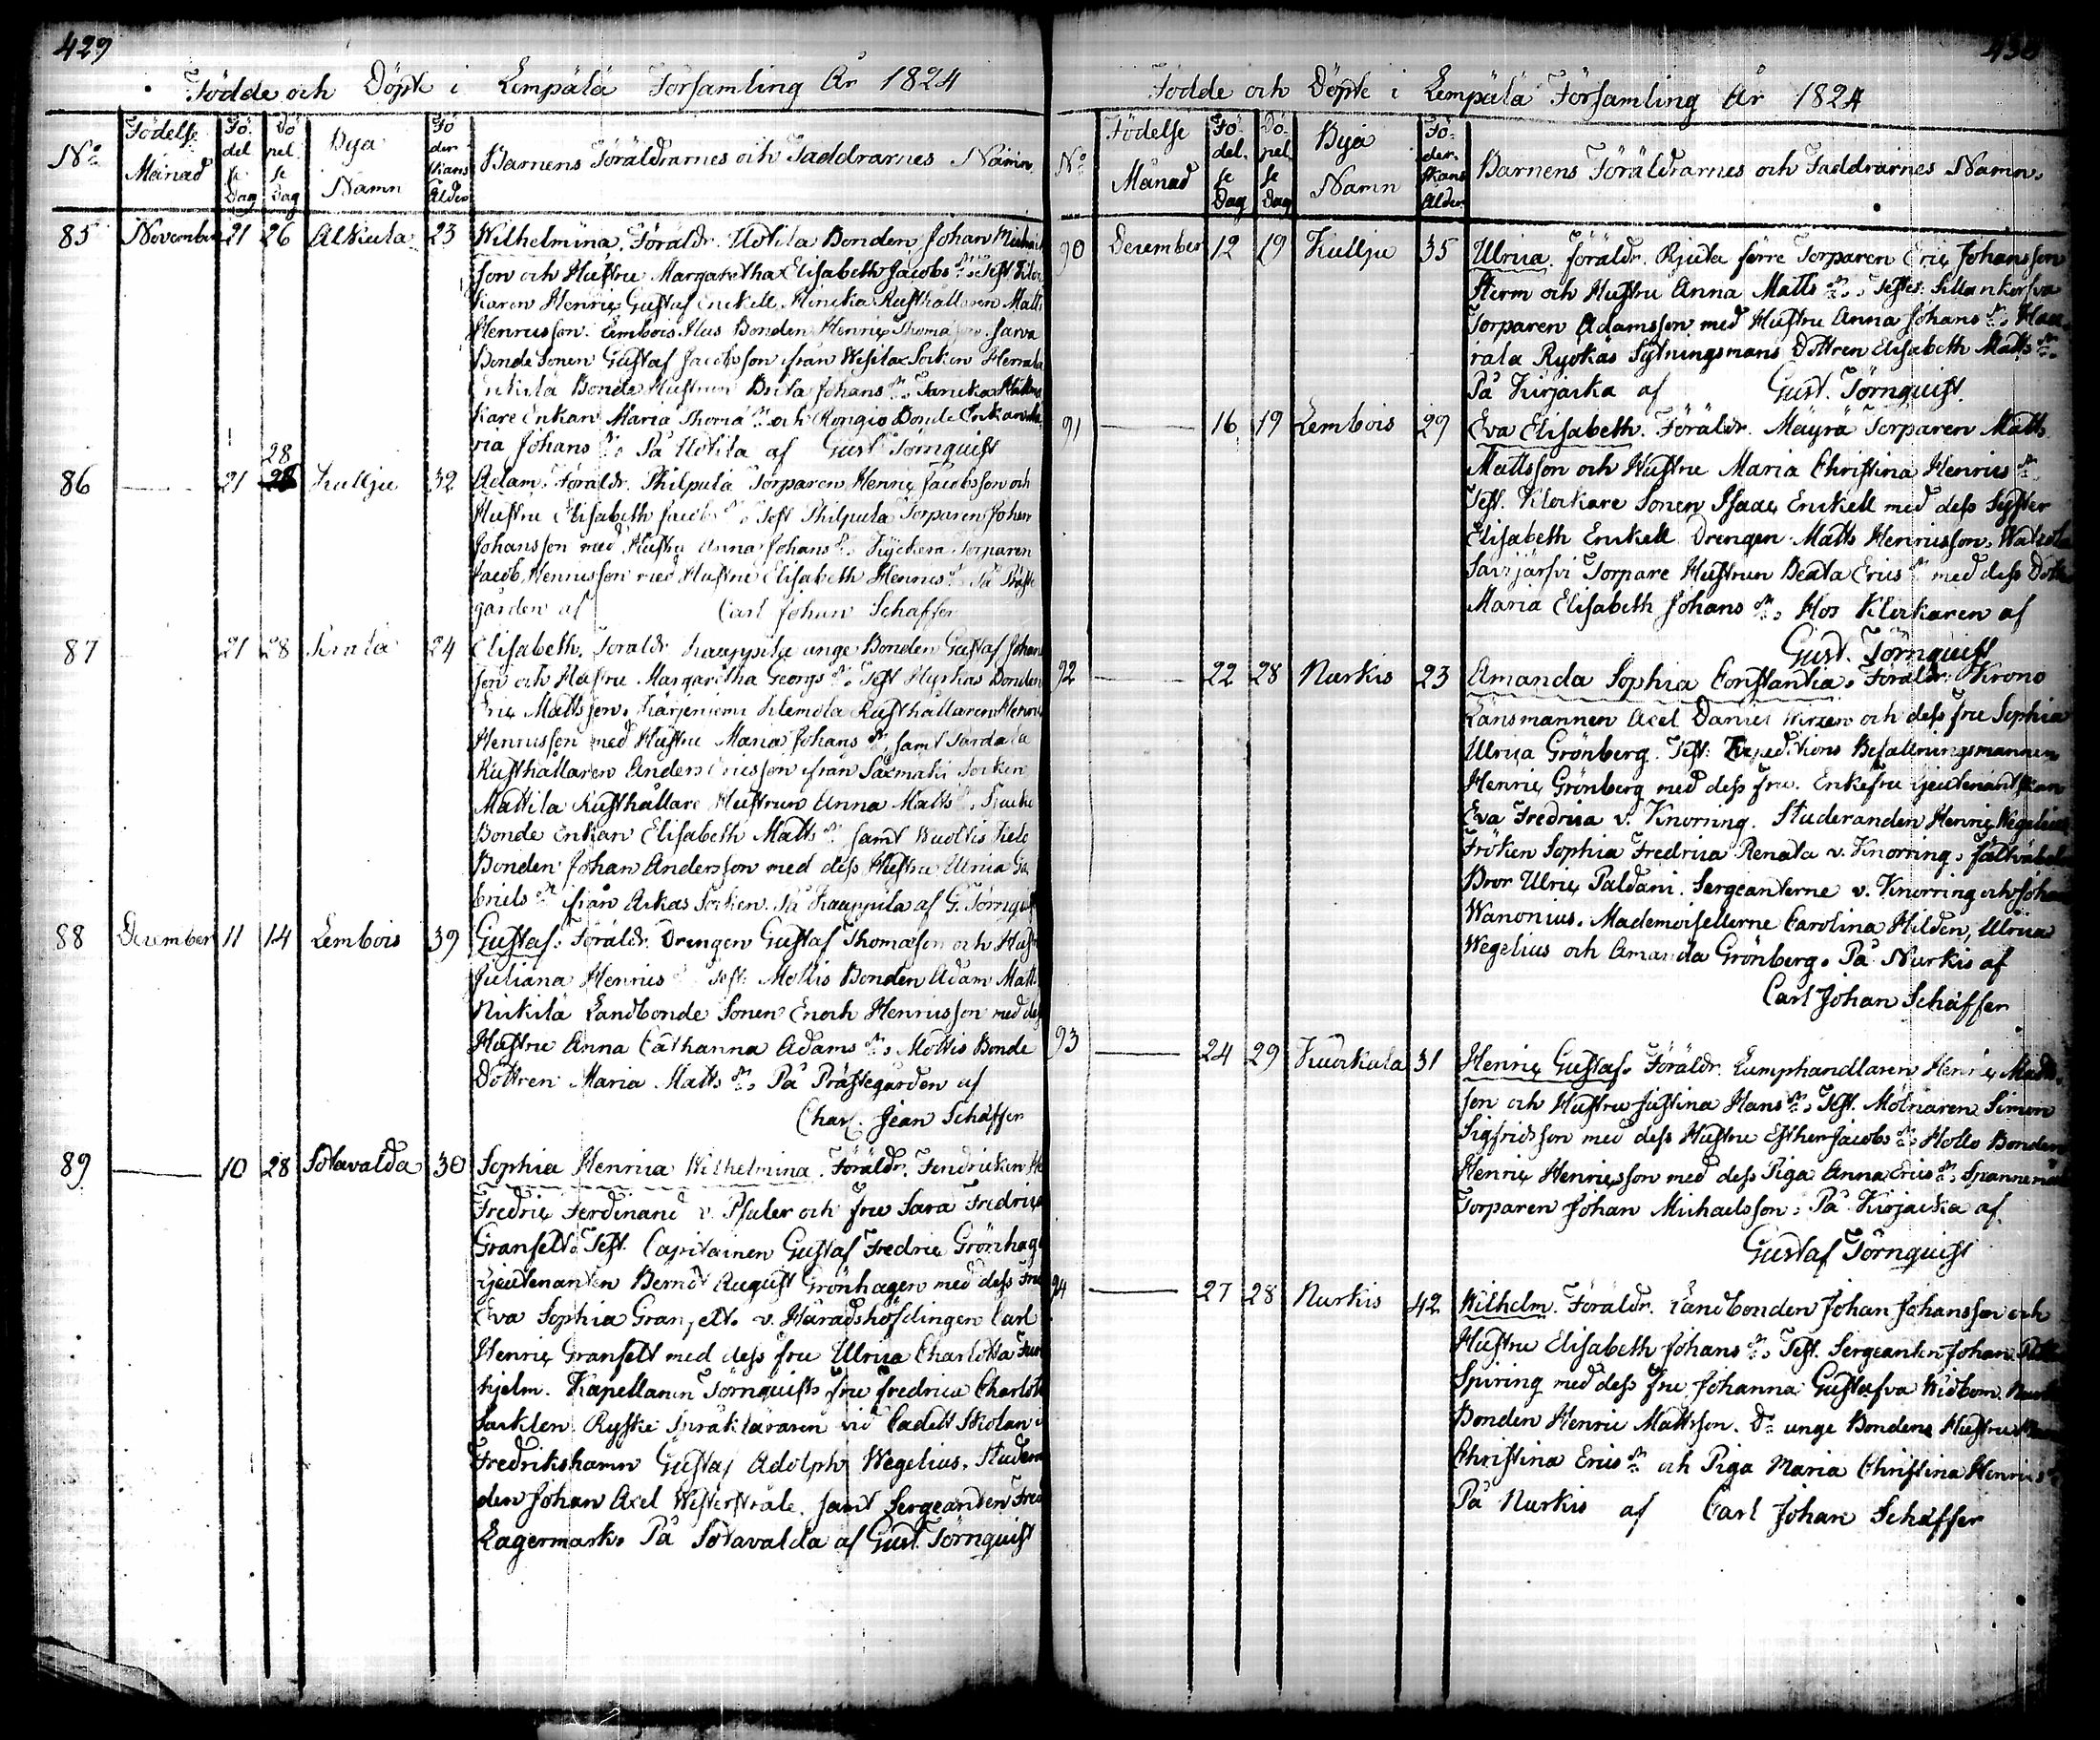 429
Födde och Döpte i Lempälä Församling År 1824
No
Födelse Månad
Födelse Dag
Döpelse Dag
Bya Namn
Föderskans Ålder
Barnens Föräldrarnes och Faddrarnes Namn
85 November 21 26 Alkula 23 Wilhelmina. Föräldr. Uotila Bonden Johan
son och Hustru Margaretha Elisabeth Jacobs dr. Test.
karen Henric Gustaf Enckell, Rusthållaren Matts
Henricsson. Lembois Ilus Bonden Henric Sarva
Bonde Sonen Gustaf Jacobsson ifrån Wesilax Socken
Bonde Hustrun Brita Johans dr.
kare Enkan Maria och Rongio Bonde Enkan
ria Johans dr. På Uotila af Gust Törnquist
28
86 — 21 Kulju 32 Adam. Föräldr. Philpula Torparen Henric Jacobsson och
Hustru Elisabeth Jacobs dr. Test Philpula Torparen Johan
Johansson med Hustru Anna Johans dr. Torparen
Jacob Henricsson med Hustru Elisabeth Henrics dr. På Präste
gården af Carl Johan Schaffer
87 21 28 24 Elisabeth. Föräldr unge Bonden Gustaf Johan
son och Hustru Margaretha Georgs dr. Test Hyrkas Bonden
Eric Mattsson. Klemola Rusthållaren Henric
Henricsson med Hustru Maria Johans dr. samt
Rusthållaren Anders Ericsson ifrån Säxmäki Socken
Mattila Rusthållare Hustrun Anna Matts dr.
Bonde Enkan Elisabeth Matts dr. samt
Bonden Johan Andersson med dess Hustru Ulrica Ga
briels dr ifrån Akkas Socken. På af G. Törnqvist
88 December 11 14 Lembois 39 Gustaf. Föräldr. Drengen Gustaf Thomasson och
Juliana Henrics Test: Mottis Bonden Adam Matts
Nickilä Landbonde Sonen Enoch Henricsson med dess
Hustru Anna Catharina Adams dr. Mottis Bonde
Dottren Maria Matts dr. På Prästegården af
Charl. Jean Schäffer
89 — 10 28 Sotavalda 30 Sophia Henrica Wilhelmina. Föräldr. Fendricken
Fredric Ferdinand v. Pfaler och fru Sara Fredrica
Granfelt. Test. Capitainen Gustaf Fredric Grönhagen
Lieutenanten Berndt August Grönhagen med dess Fru
Eva Sophia Granfelt. v. Häradshöfdingen Carl
Henric Granfelt med dess fru Ulrica Charlotta
hjelm. Kapellanen Törnquists fru Fredrica Charlot
Ryske Språkläraren vid Cadett Skolan i
Fredrikshamn Gustaf Adolph Wegelius, Studeran
den Johan Axel Westerstråle samt Sergeanten Fred
Lagermark. På Sotavalda af Gust. Törnquist
Födde och Döpte i Lempälä Församling År 1824
No
Födelse Månad
Födelse Dag
Döpelse Dag
Bya Namn
Föderskans Ålder
Barnens Föräldrarnes och Faddrarnes Namn.
90 December 12 19 Kulju 35 Ulrica. Föräldr. förre Torparen Eric Johansson
Sturm och Hustru Anna Matts dr.
Torparen Adamsson med Hustru Anna Johans dr.
Ryökäs Sytningsmans Dottren Elisabeth Matts dr.
På Kirjacka af Gust. Törnquist.
91 — 16 19 Lembois 29 Eva Elisabeth. Föräldr. Mäyrä Torparen Matts
Mattsson och Hustru Maria Christina Henrics dr.
Test. Klockare Sonen Isaac Enckell med dess Syster
Elisabeth Enckell. Drengen Matts Henricsson,
Savijärfvi Torpare Hustrun Beata Erics dr. med dess
Maria Elisabeth Johans dr. Hos Klockaren af
Gust. Törnquist
92 — 22 28 Nurkis 23 Amanda Sophia Constantia. Föräldr. Krono
Länsmannen Axel Daniel Wirzen och dess fru Sophia
Ulrica Grönberg. Test: Expeditions Befallningsmannen
Henric Grönberg med dess fru. Enkefru Lieutenantskan
Eva Fredrica v. Knorring. Studeranden Henric Wegelius
Fröken Sophia Fredrica Renata v. Knorring,
Bror Ulric Paldani. Sergeanterne v. Knorring och Johan
Wanonius. Mademoisellerne Carolina Hilden, Ulrica
Wegelius och Amanda Grönberg. På Nurkis af
Carl Johan Schäffer
93 — 24 29 Kuokkala 31 Henric Gustaf. Föräldr. Lumphandlaren Henric
son och Hustru Justina Hans dr. Test. Mölnaren Simon
Sigfridsson med dess Hustru Esther Jacobs dr. Hollo Bonden
Henric Henricsson med dess Piga Anna Erics dr.
Torparen Johan Michaelsson. På Kirjacka af
Gustaf Törnquist
94 — 27 28 Nurkis 42 Wilhelm. Föräldr. Landbonden Johan Johansson och
Hustru Elisabeth Johans dr. Test. Sergeanten Johan
Spiring med dess fru Johanna Gustafva Widbom.
Bonden Henric Mattsson. Do unge Bondens Hustru
Christina Erics dr och Piga Maria Christina Henrics dr
På Nurkis af Carl Johan Schäffer